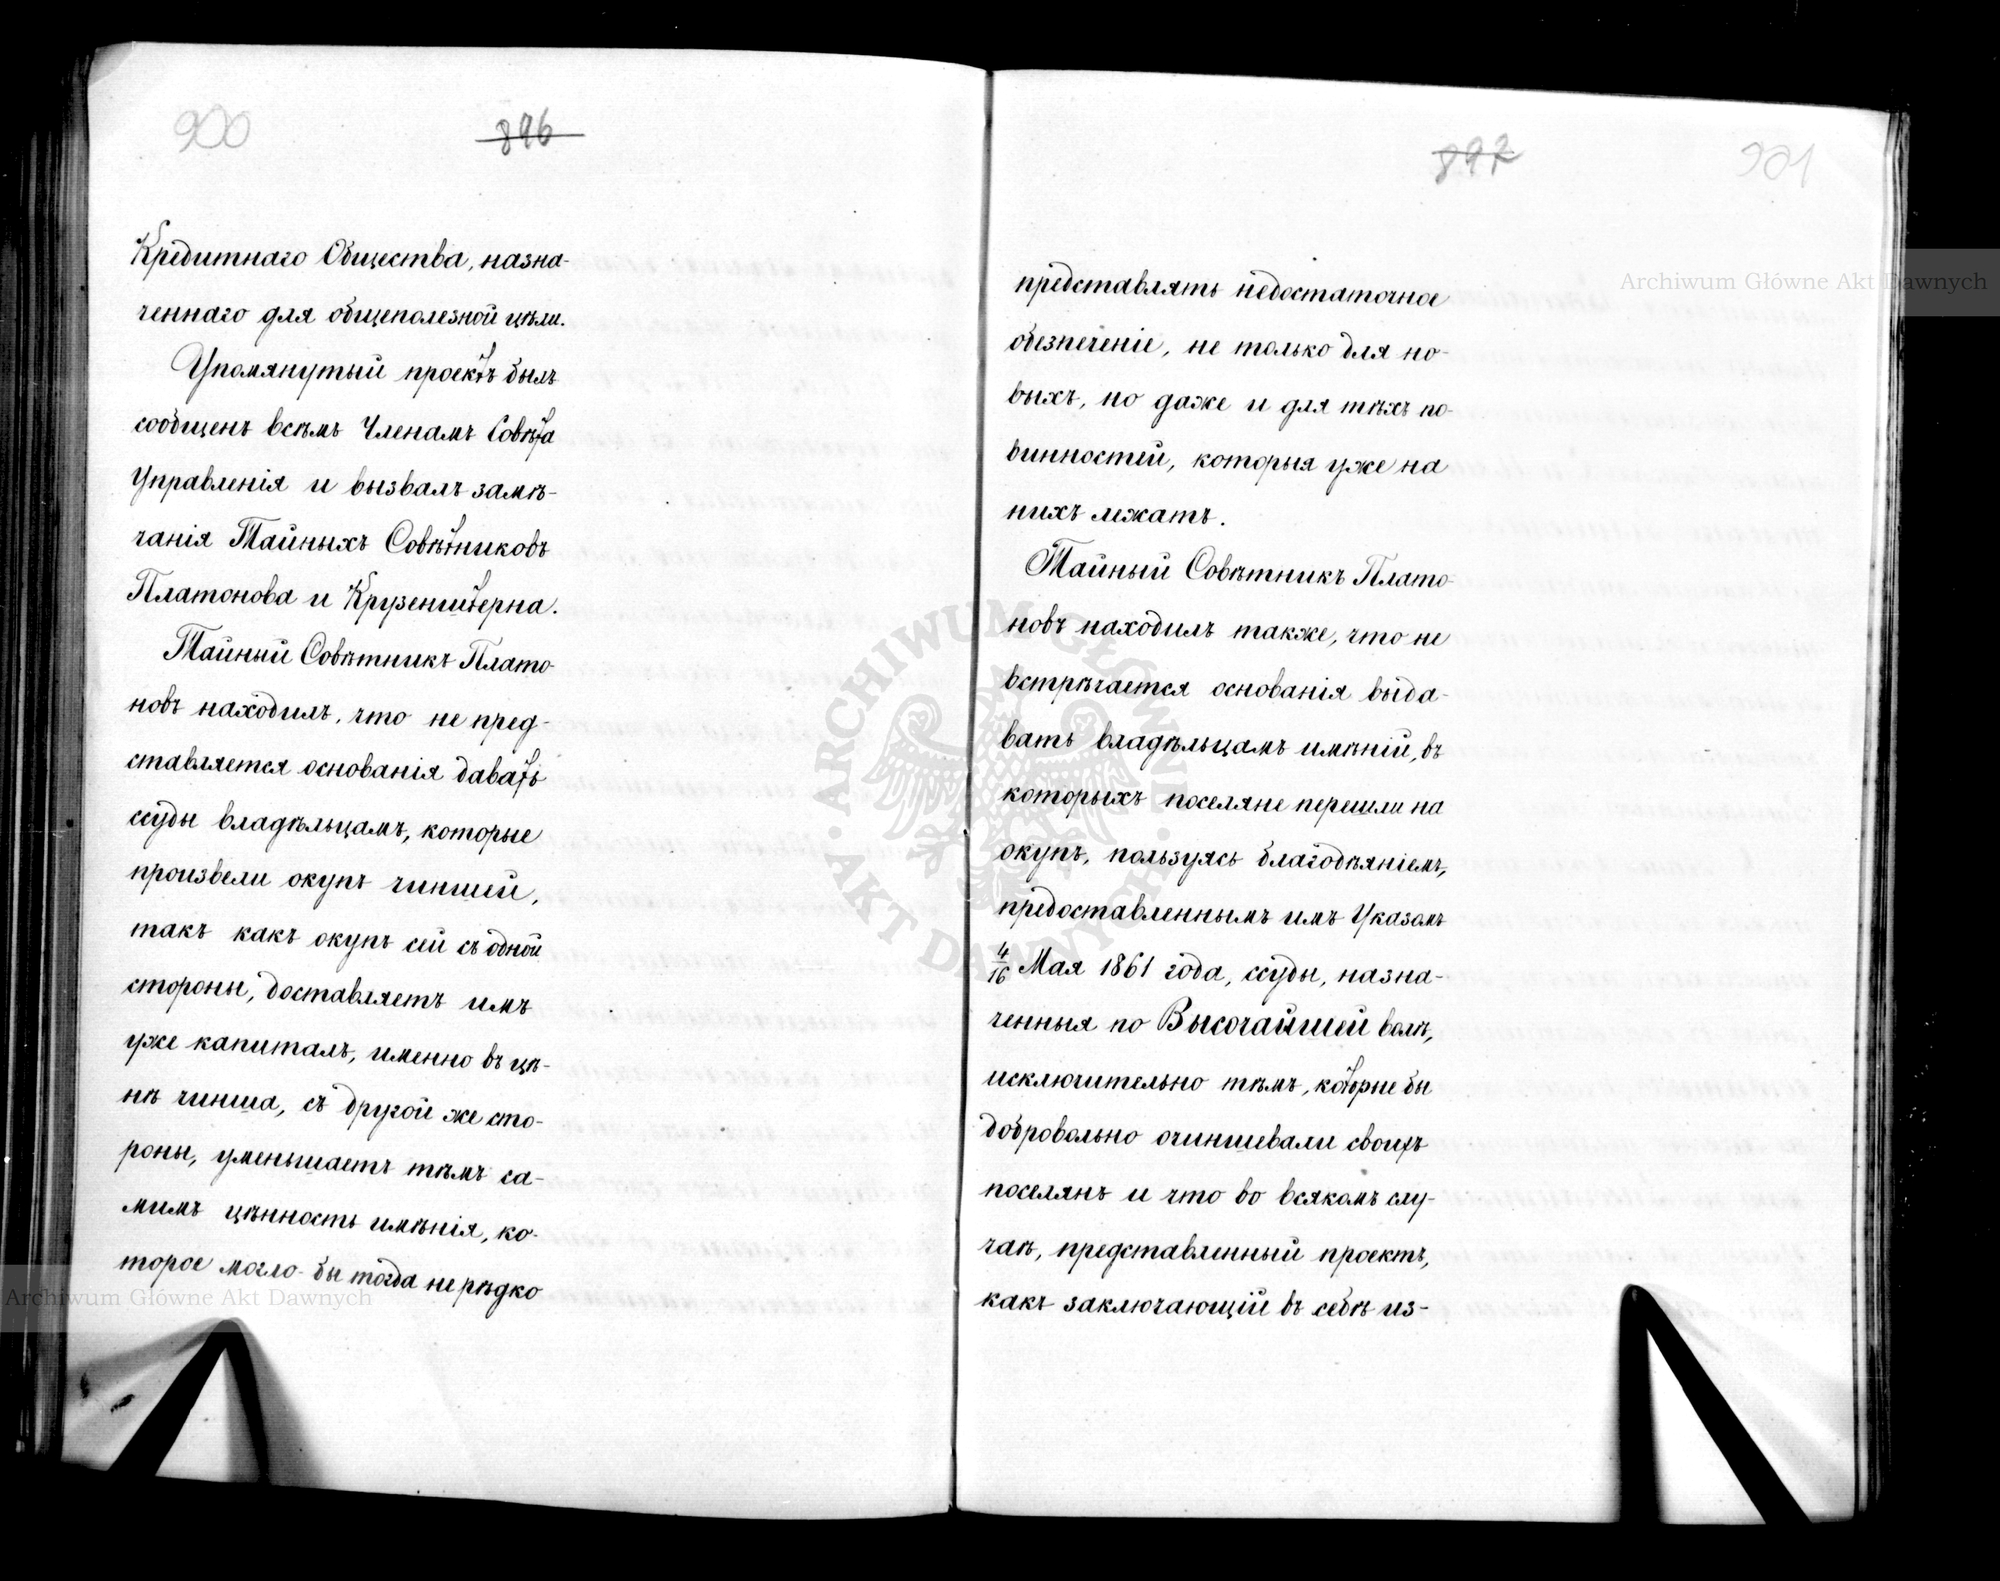 900
896
Кредитнаго Общества, назна-
ченнаго для общеполезной цѣли.
Упомянутый проектъ былъ
сообщенъ всѣмъ Членамъ Совѣта
Управленія и вызвалъ замѣ-
чанія Тайныхъ Совѣтниковъ
Платонова и Крузенштерна.
Тайный Совѣтникъ Плато-
новъ находилъ, что не пред-
ставляется основанія давать
ссуды владѣльцамъ, которые
произвели окупъ чиншей,
такъ какъ окупъ сей съ одной
стороны, доставляетъ имъ
уже капиталъ, именно въ цѣ-
нѣ чинша, съ другой же сто-
роны, уменьшаетъ тѣмъ са-
мимъ цѣнность имѣнія, ко-
торое могло бы тогда не рѣдко
897
901
представлять недостаточное
обезпеченіе, не только для но-
выхъ, но даже и для тѣхъ по-
винностей, которыя уже на
нихъ лежатъ.
Тайный Совѣтникъ Плато-
новъ находилъ также, что не
встрѣчается основанія выда-
вать владѣльцамъ имѣній, въ
которыхъ поселяне перешли на
окупъ, пользуясь благодѣяніемъ,
предоставленнымъ имъ Указомъ
4/16 Мая 1861 года, ссуды, назна-
ченныя по Высочайшей волѣ,
исключительно тѣмъ, которые бы
добровольно очиншевали своихъ
поселянъ и что во всякомъ слу-
чаѣ, представленный проектъ,
какъ заключающій въ себѣ из-
Archiwum Główne Akt Dawnych
Archiwum Główne Akt Dawnych
ARCHIWUM GŁÓWNE
AKT DAWNYCH